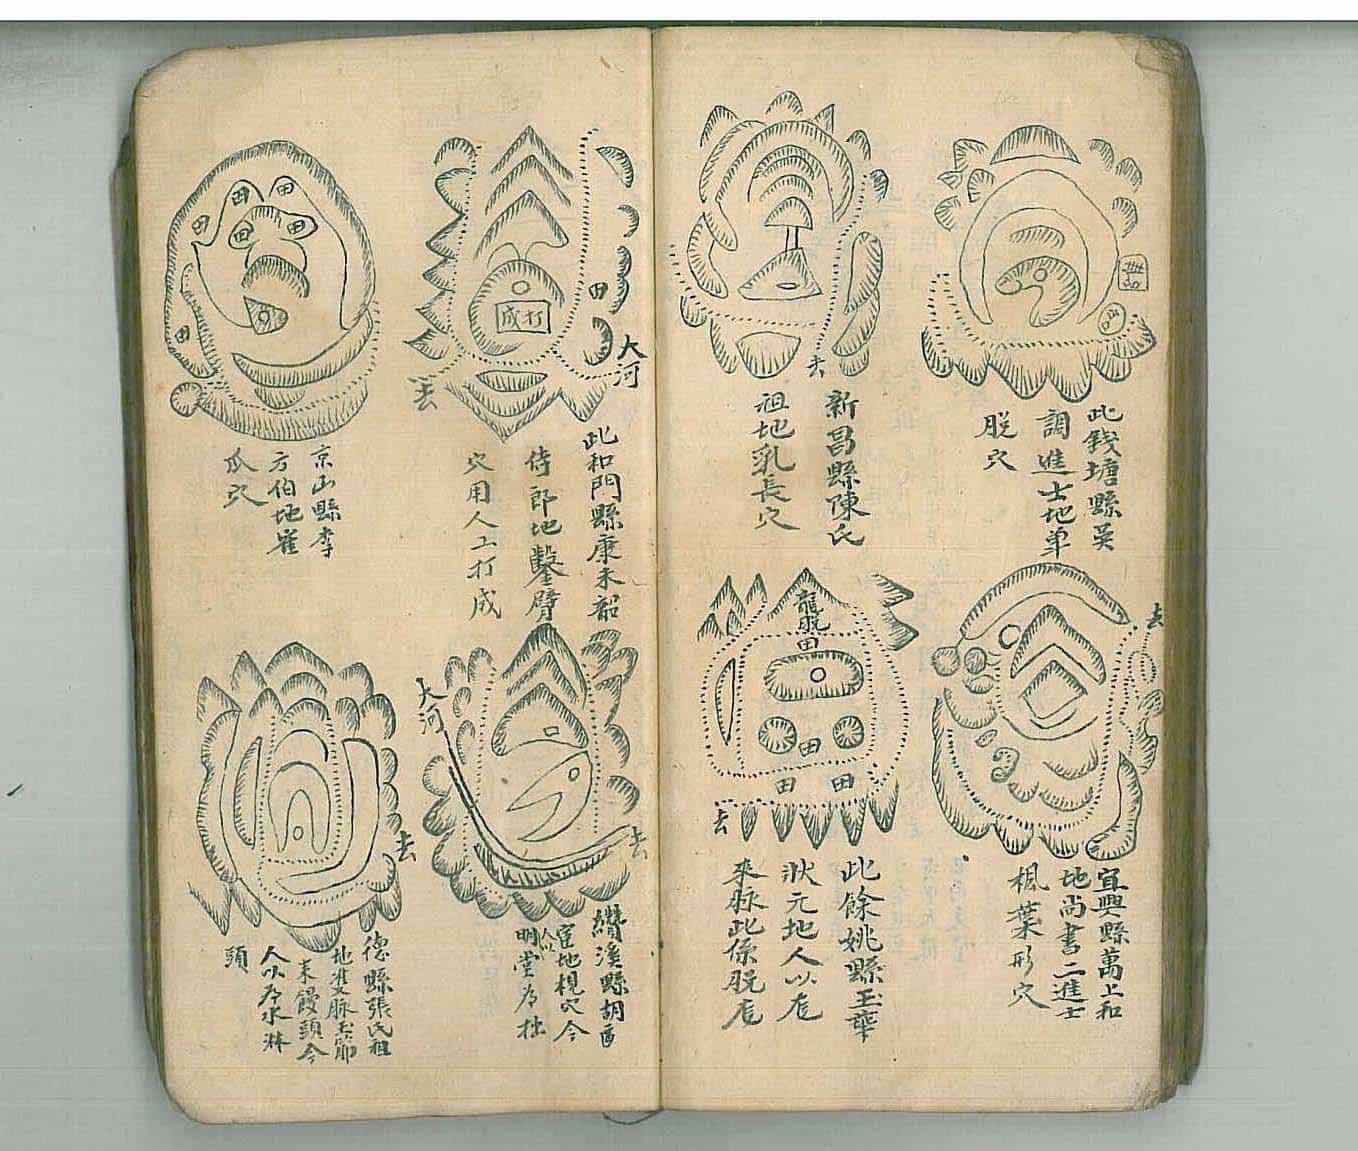 此錢塘縣吳
調進士地單
脫穴
去
新昌縣陳氏
祖地乳長穴
去
宜興縣萬上和
地尚書二進士
楓葉形穴
龍脫
田
田
田
田
去
此餘姚縣王華
狀元地人以为
來脉此係脫
大河
田
打成
去
此和門縣康未韶
侍郎地鑿臂
穴用人工打成
田
田
田
田
田
田
京山縣李
方伯地雀
爪穴
大河
去
縣胡
宦地梘穴今
明堂
去
德縣張氏祖
地進脉玉節
來饅頭今
人以為水淋
頭